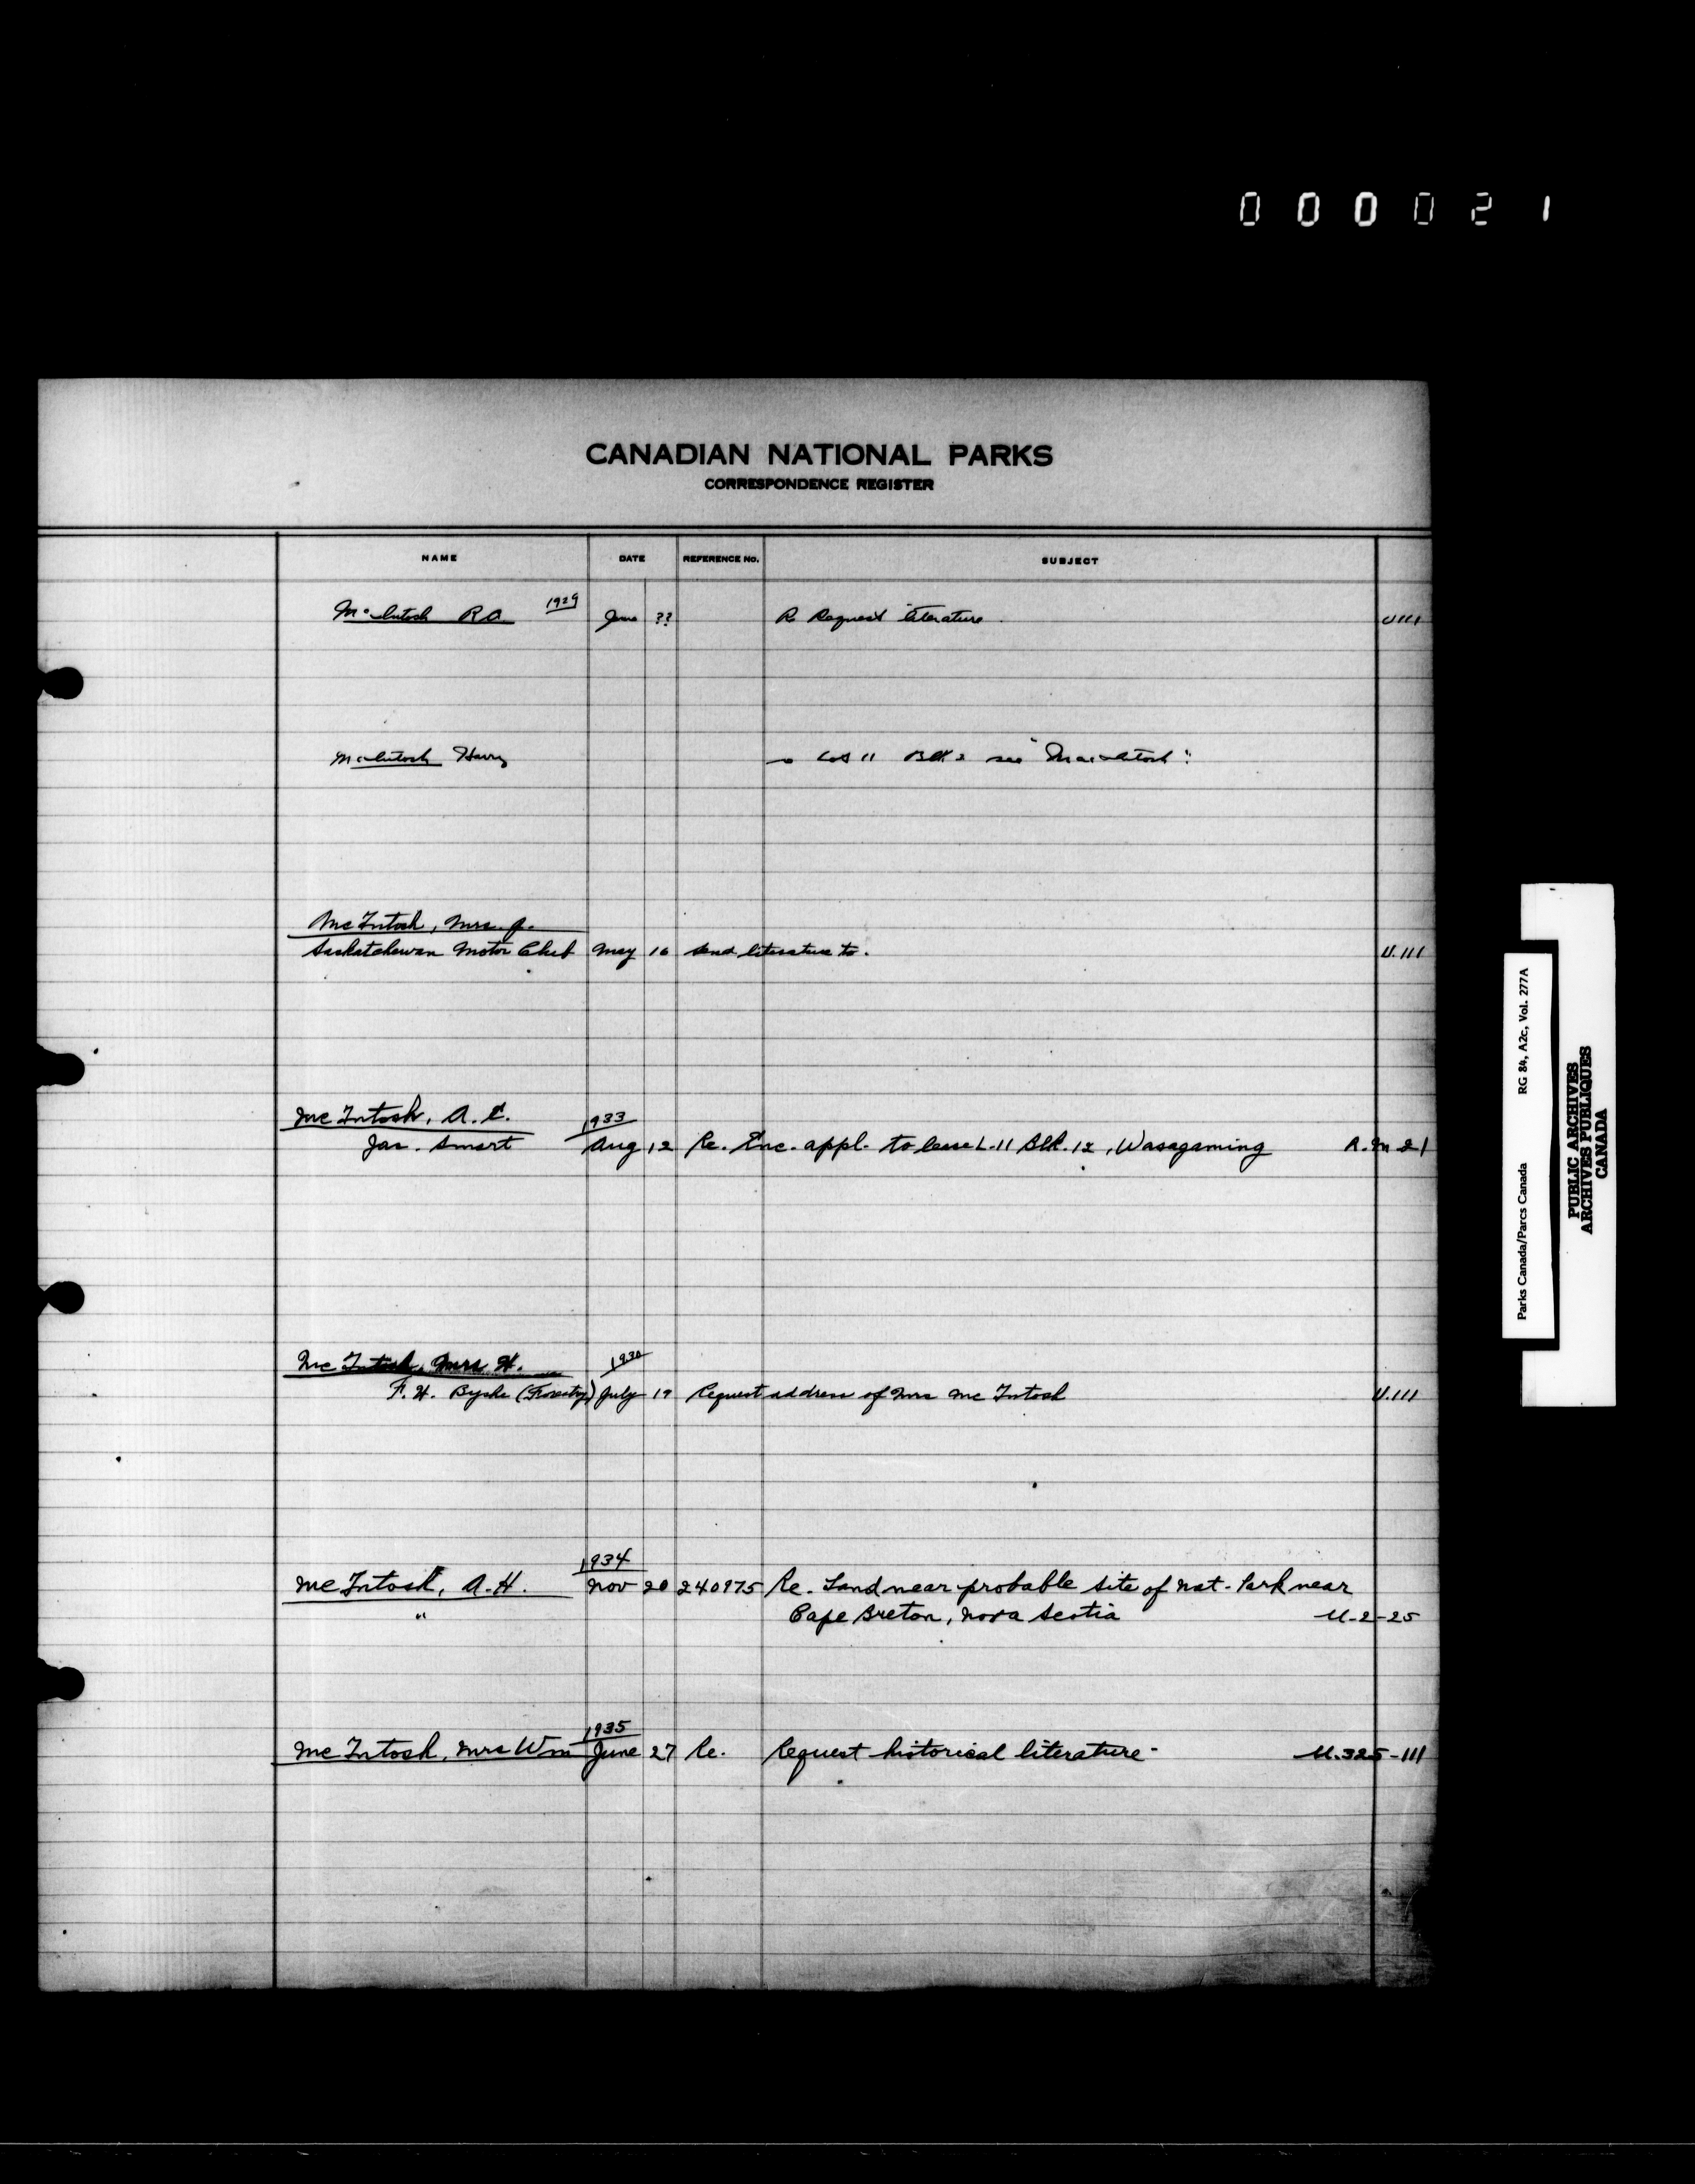 000021
CANADIAN NATIONAL PARKS
CORRESPONDENCE REGISTER
NAME DATE REFERENCE No. SUBJECT
McIntosh R A 1929 June ?? Re Request literature. U111
McIntosh Harry Lot 11 Blk 2 see "MacIntosh"
McIntosh, Mrs. J.
Saskatchewan Motor Club May 16 Send literature to. U.111
McIntosh, A. E. 1933
Jas. Smart Aug 12 Re. Enc. appl. to lease L.11 Blk. 12, Wasagaming R.M 21
McIntosh, Mrs H. 1930
F. H. (Forestry) July 19 Request address of Mrs McIntosh U.111
1934
McIntosh, A.H. Nov 20 240975 Re. Land near probable site of Nat. Park near
" Cape Breton, Nova Scotia U-2-25
1935
McIntosh, Mrs Wm June 27 Re. Request historical literature - U.325-111
Parks Canada/Parcs Canada RG 84, A2c, Vol. 277A
PUBLIC ARCHIVES
ARCHIVES PUBLIQUES
CANADA